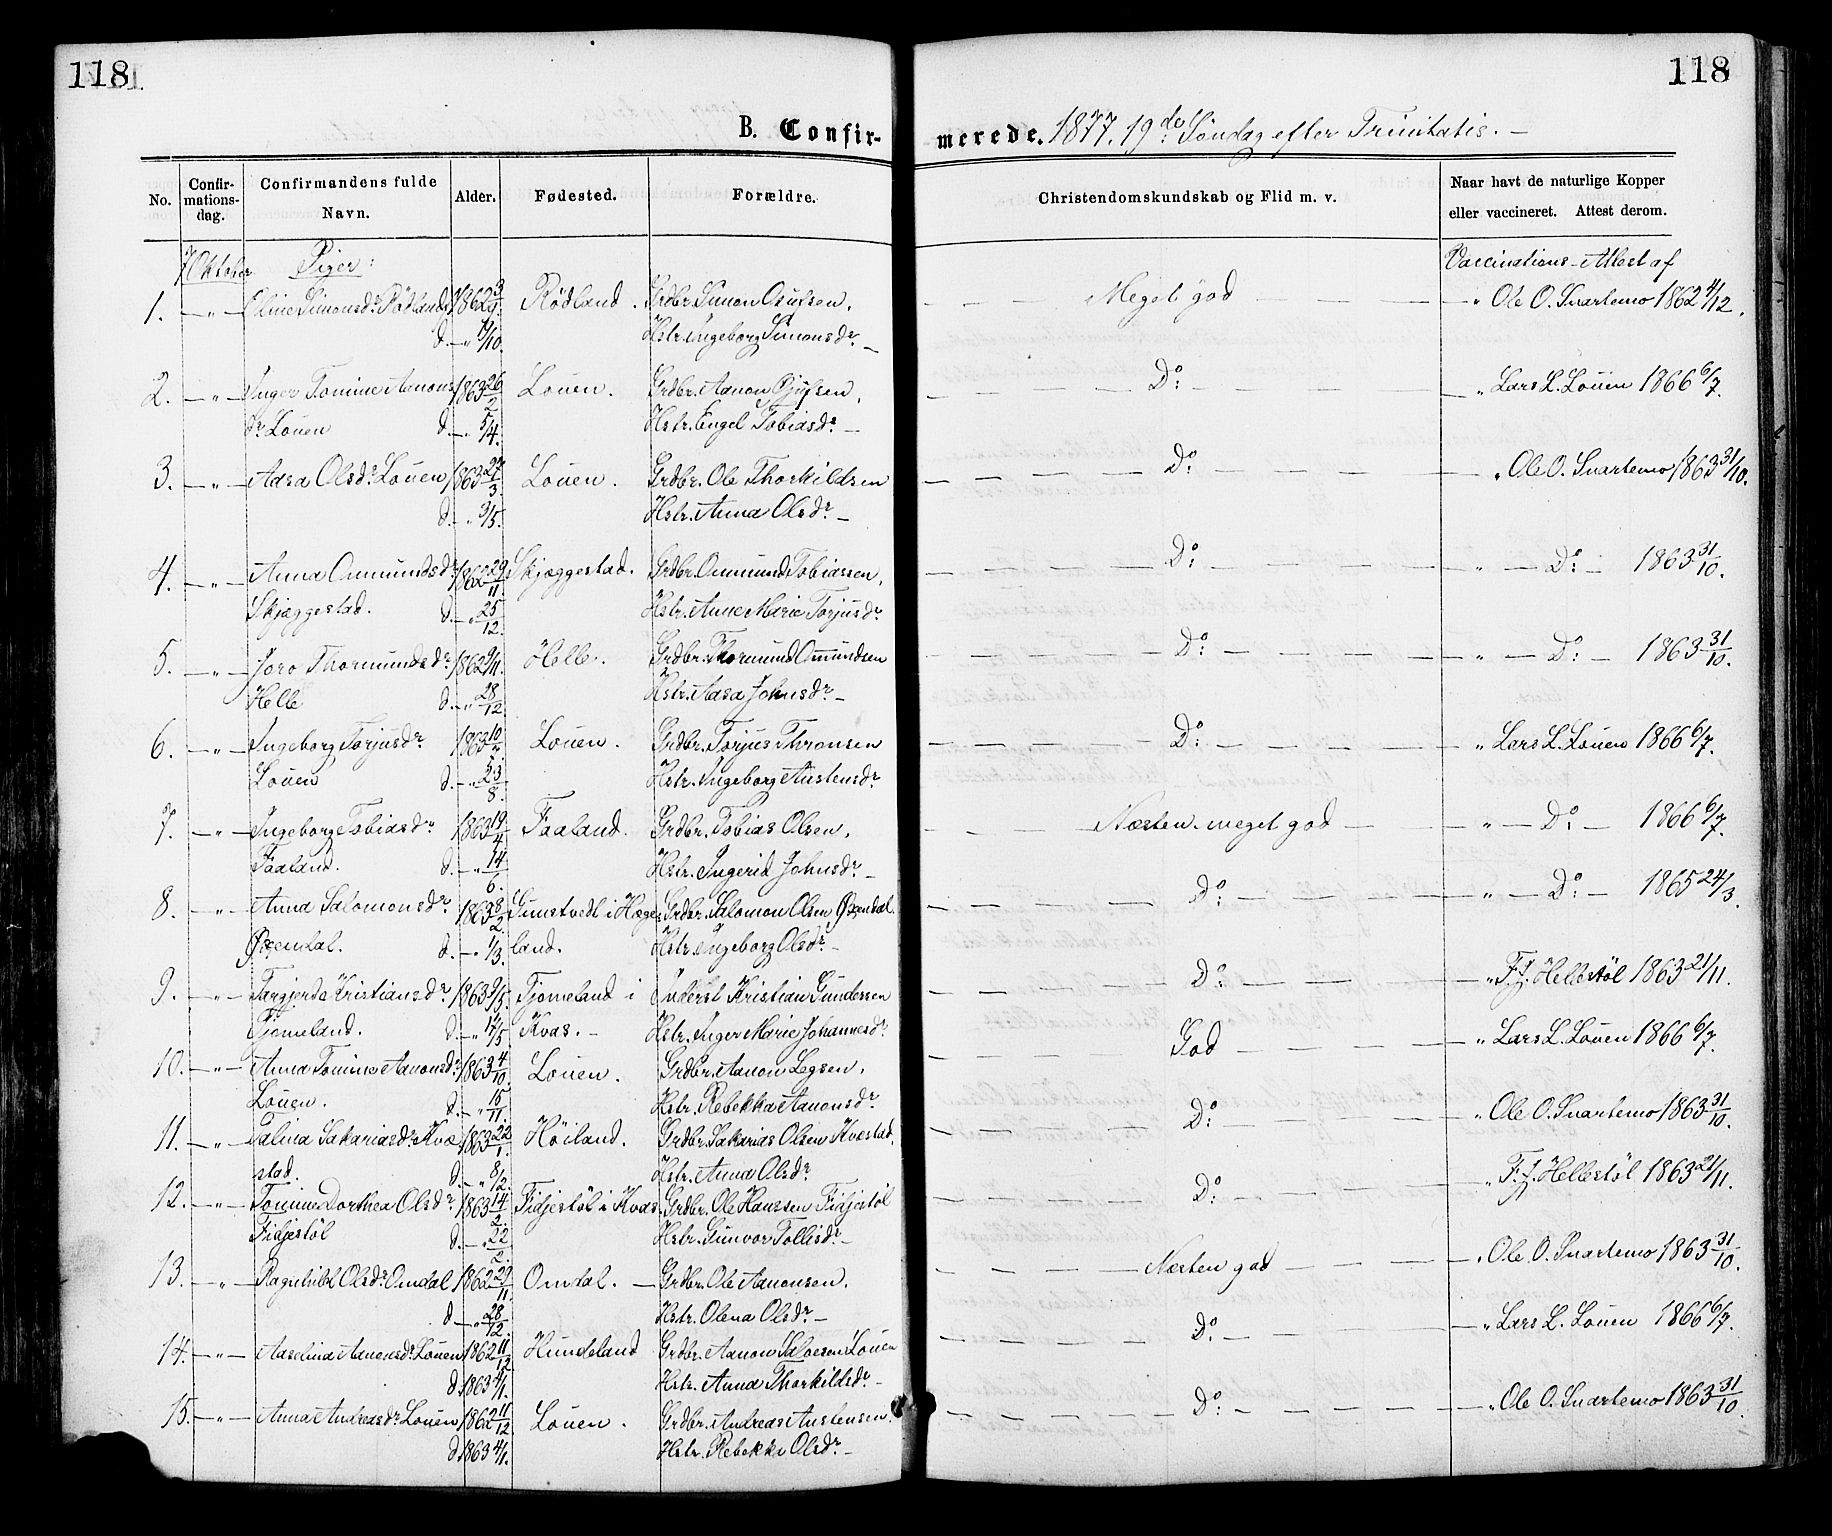 118.
118
B. Confir-
merede. 1877. 19de Søndag efter Trinitatis. —
No. Confir-mations-dag. Confirmandens fulde Navn. Alder. Fødested. Forældre. Christendomskundskab og Flid m. v. Naar havt de naturlige Kopper eller vaccineret. Attest derom.
7 Oktober Piger: Vaccinations-Attest af
1. — „ — Eline Simonsdr. Rødland 1862 Rødland. Grdbr. Simon Osufsen, — Meget god — „ Ole O. Snartemo 1862 4/12.
d. — „ /10. Hstr. Ingeborg Simonsdr. —
2. — „ — Inger Tomine Aanons 1863 26/2 Louen. Grdbr. Aanon — Do: — „ Lars L. Louen 1866 6/7.
dr. Louen d. — „ 5/4. Hstr. Engel Tobiasdr. —
3. — „ — Aasa Olsdr. Louen 1863 27/3. Louen. Grdbr. Ole Thorkildsen — Do: — „ Ole O. Snartemo 1863 31/10.
d. — „ 3/5. Hstr. Anna Olsdr. —
4. — „ — Anna Ommundsdr. 1862 29/11 Skjæggestad. Grdbr. Ommund Tobiassen, — Do: — „ — Do: — 1863 31/10.
Skjæggestad. d. — „ 25/12. Hstr. Anne Marie Torjusdr.
5. — „ — Joro Thormundsdr. 1862 9/11. Helle. Grdbr. Thormund Ommundsen — Do: — „ — Do: — 1863 31/10.
Helle d. — „ 28/12. Hstr. Aasa Johnsdr. —
6. — „ — Ingeborg Torjusdr. 1863 10/ Louen. Grdbr. Torjus Thronsen — Do: — „ Lars L. Louen 1866 6/7.
Louen d. — „ 23/8. Hstr. Ingeborg Austensdr.
7. — „ — Ingeborg Tobiasdr. 1863 19/4 Faaland. Grdbr. Tobias Olsen, — Næsten meget god — „ — Do: — 1866 6/7.
Faaland. d. — „ 14/6. Hstr. Ingerid Johnsdr. —
8. — „ — Anna Salomonsdr. 1863 8/2. Gunstvedt i Hæge- Grdbr. Salomon Olsen Øxendal. — Do: — „ — Do: — 1865 24/3.
Øxendal. d. — „ 1/3. land. Hstr. Ingeborg Olsdr. —
9. — „ — Targjerd Kristiansdr. 1863 9/5. Tjomeland i Inderst Kristian Gundersen — Do: — „ F. J. Hellestøl 1863 21/11.
Tjomeland. d. — „ 17/5 Kvas. — Hstr. Inger Marie Johannesdr.
10. — „ — Anna Tomine Aanonsdr. 1863 4/10. Louen. Grdbr. Aanon Legsen, — God — „ Lars L. Louen 1866 6/7.
Louen. d. — „ 15/11. Hstr. Rebekka Aanonsdr.
11. — „ — Talina Sakariasdr. Kvæ 1863 22/1. Høiland. Grdbr. Sakarias Olsen Kvæstad, — Do: — „ Ole O. Snartemo 1863 31/10.
stad. d. — „ 8/2. Hstr. Anna Olsdr.
12. — „ — Tomine Dorthea Olsdr. 1863 14/2. Fidjestøl i Kvas. Grdbr. Ole Hanssen Fidjestøl — Do: — „ F. J. Hellestøl 1863 21/11.
Fidjestøl d. — „ 22/2. Hstr. Gunvor Tollisdr. —
13. — „ — Ragnhild Olsdr. Omdal 1862 29/11 Omdal. — Grdbr. Ole Aanonsen. — Næsten god — „ Ole O. Snartemo 1863 31/10.
d. — „ 28/12. Hstr. Olena Olsdr. —
14. — „ — Aaselina Aanonsdr. Louen 1862 11/12. Hundeland Grdbr. Aanon Salvesen Louen — Do: — „ Lars L. Louen 1866 6/7.
d. 1863 4/1. Hstr. Anna Thorkildsdr. —
15. — „ — Anna Andreasdr. Louen 1862 11/12. Louen. Grdbr. Andreas Austensen. — Do: — „ Ole O. Snartemo 1863 31/10.
d. 1863 4/1. Hstr. Rebekka Olsdr. —